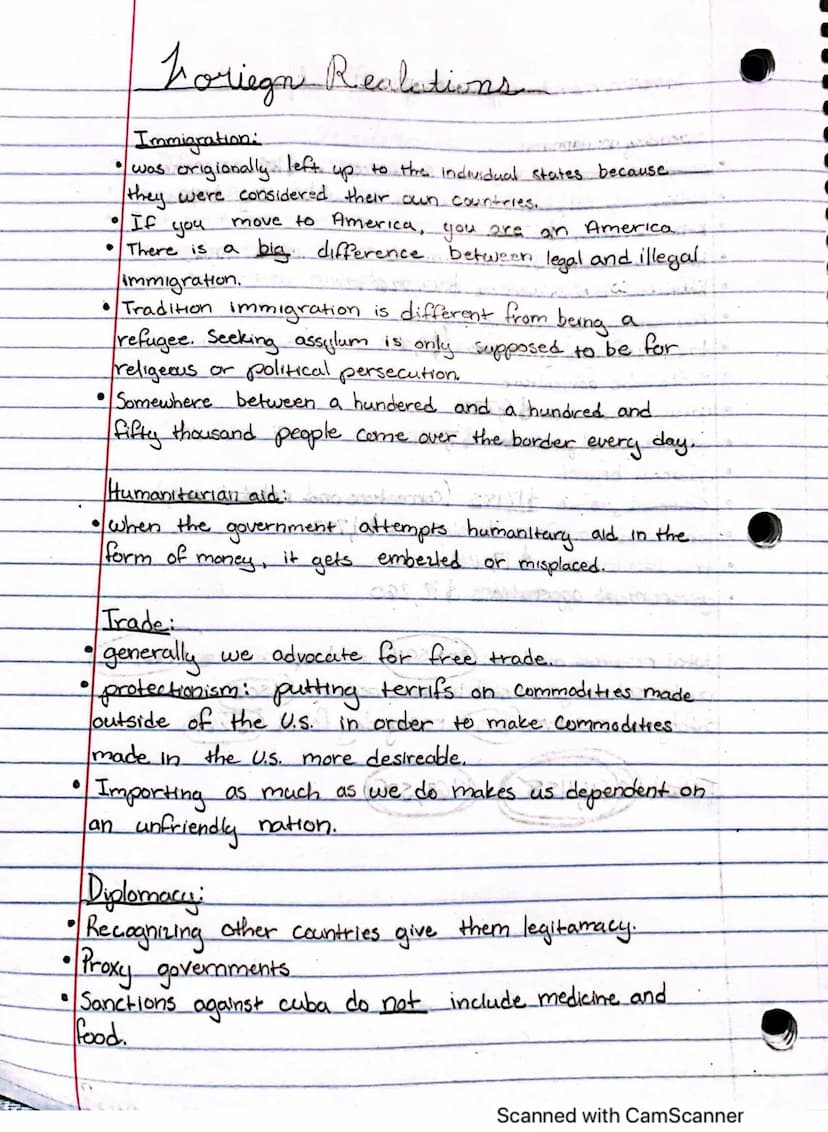 Foriegn Realations
Immigration:
• was origionally left up to the individual states because
they were considered their own countries.
• If you move to America, you are an America
• There is a big difference between legal and illegal
immigration.
• Tradition immigration is different from being a
refugee. Seeking assylum is only supposed to be for
religeous or political persecution.
• Somewhere between a hundered and a hundred and
fifty thousand people come over the border every day.
Humanitarian aid:
• when the government attempts humanitary aid in the
form of money, it gets embezled or misplaced.
Trade:
• generally we advocate for free trade.
• protectionism: putting terrifs on commodities made
outside of the U.S. in order to make commodities
made in the U.S. more desireable.
• Importing as much as we do makes us dependent on
an unfriendly nation.
Diplomacy:
• Recognizing other countries give them legitamacy.
• Proxy governments
• Sanctions against cuba do not include medicine and
food.
Scanned with CamScanner